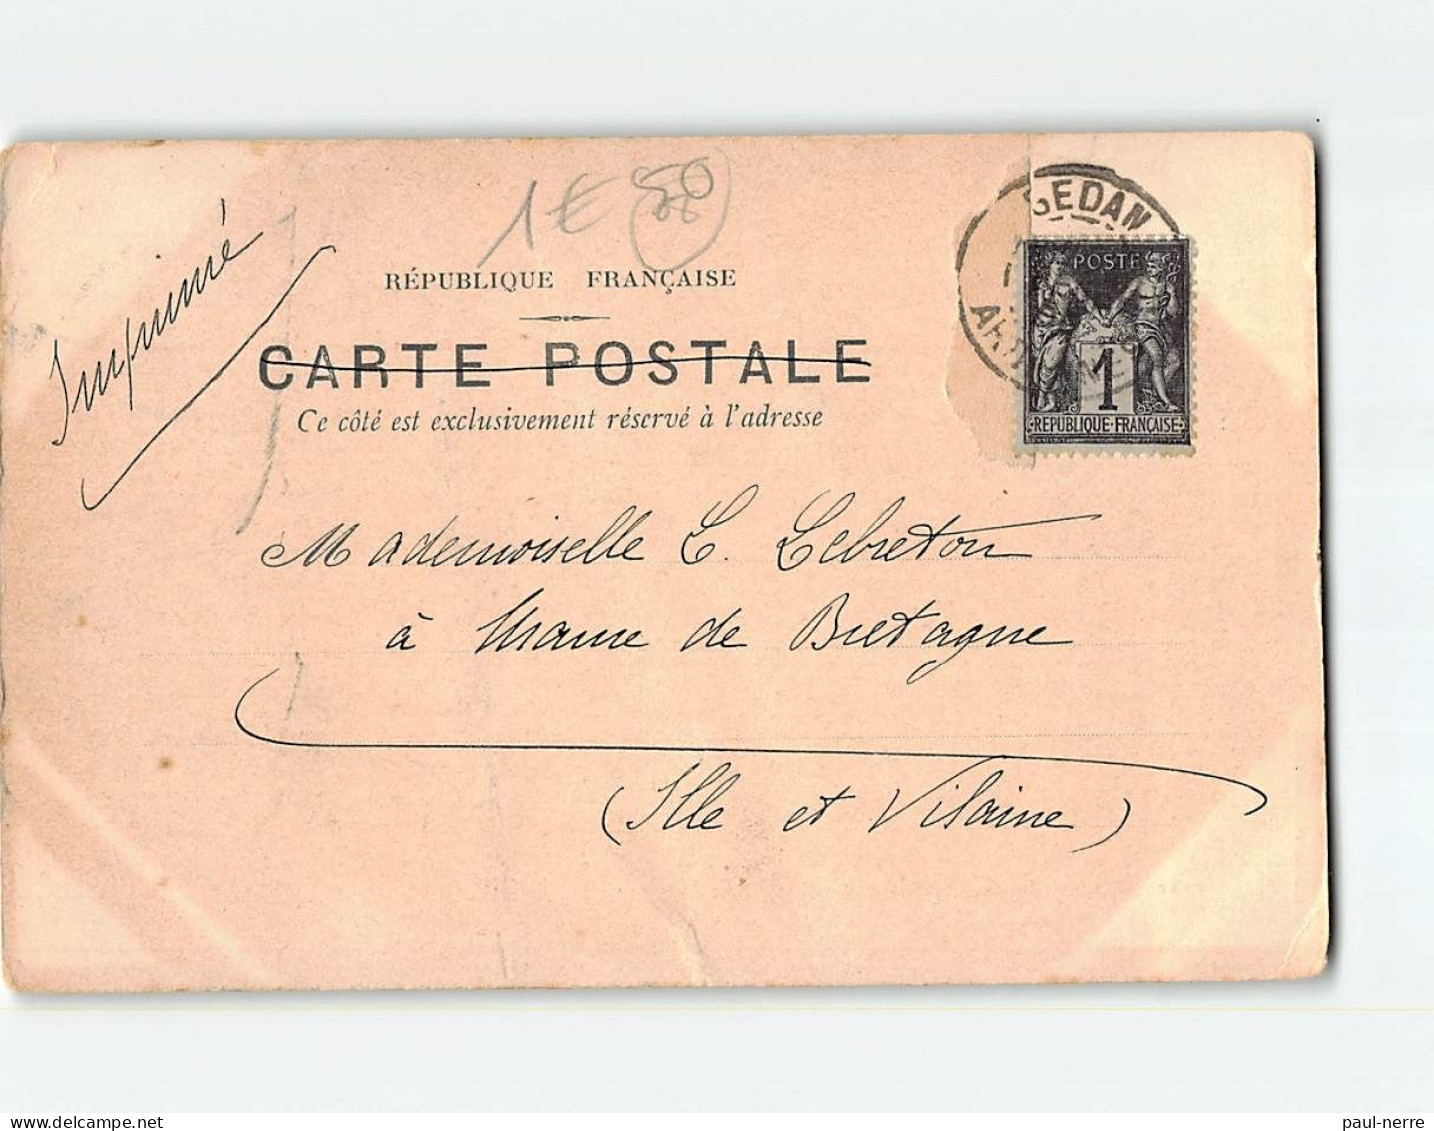 Imprimé
1€50
RÉPUBLIQUE FRANÇAISE
CARTE POSTALE
Ce côté est exclusivement réservé à l'adresse
SEDAN
POSTE
1
REPUBLIQUE FRANÇAISE
Mademoiselle L. Lebreton
à Maure de Bretagne
(Ille et Vilaine)
paul-nerre